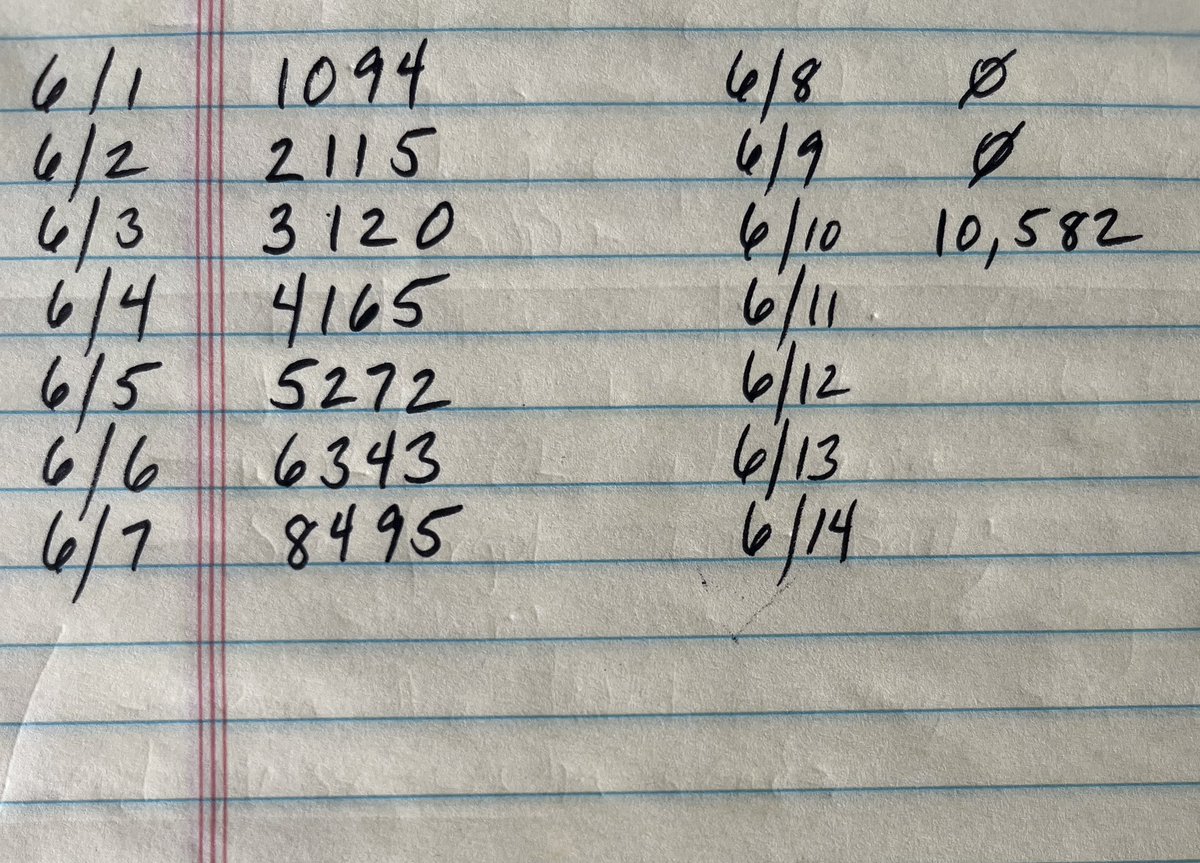 6/1 1094
6/2 2115
6/3 3120
6/4 4165
6/5 5272
6/6 6343
6/7 8495
6/8 Ø
6/9 Ø
6/10 10,582
6/11
6/12
6/13
6/14